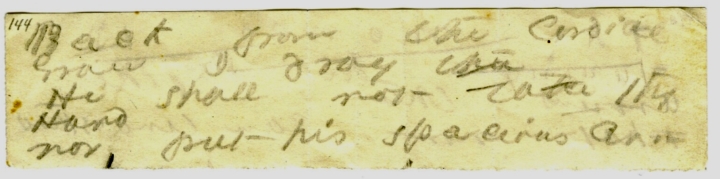 144
Back from the Cordial
Grave I drag thee
He shall not take thy
Hand
nor put his spacious arm